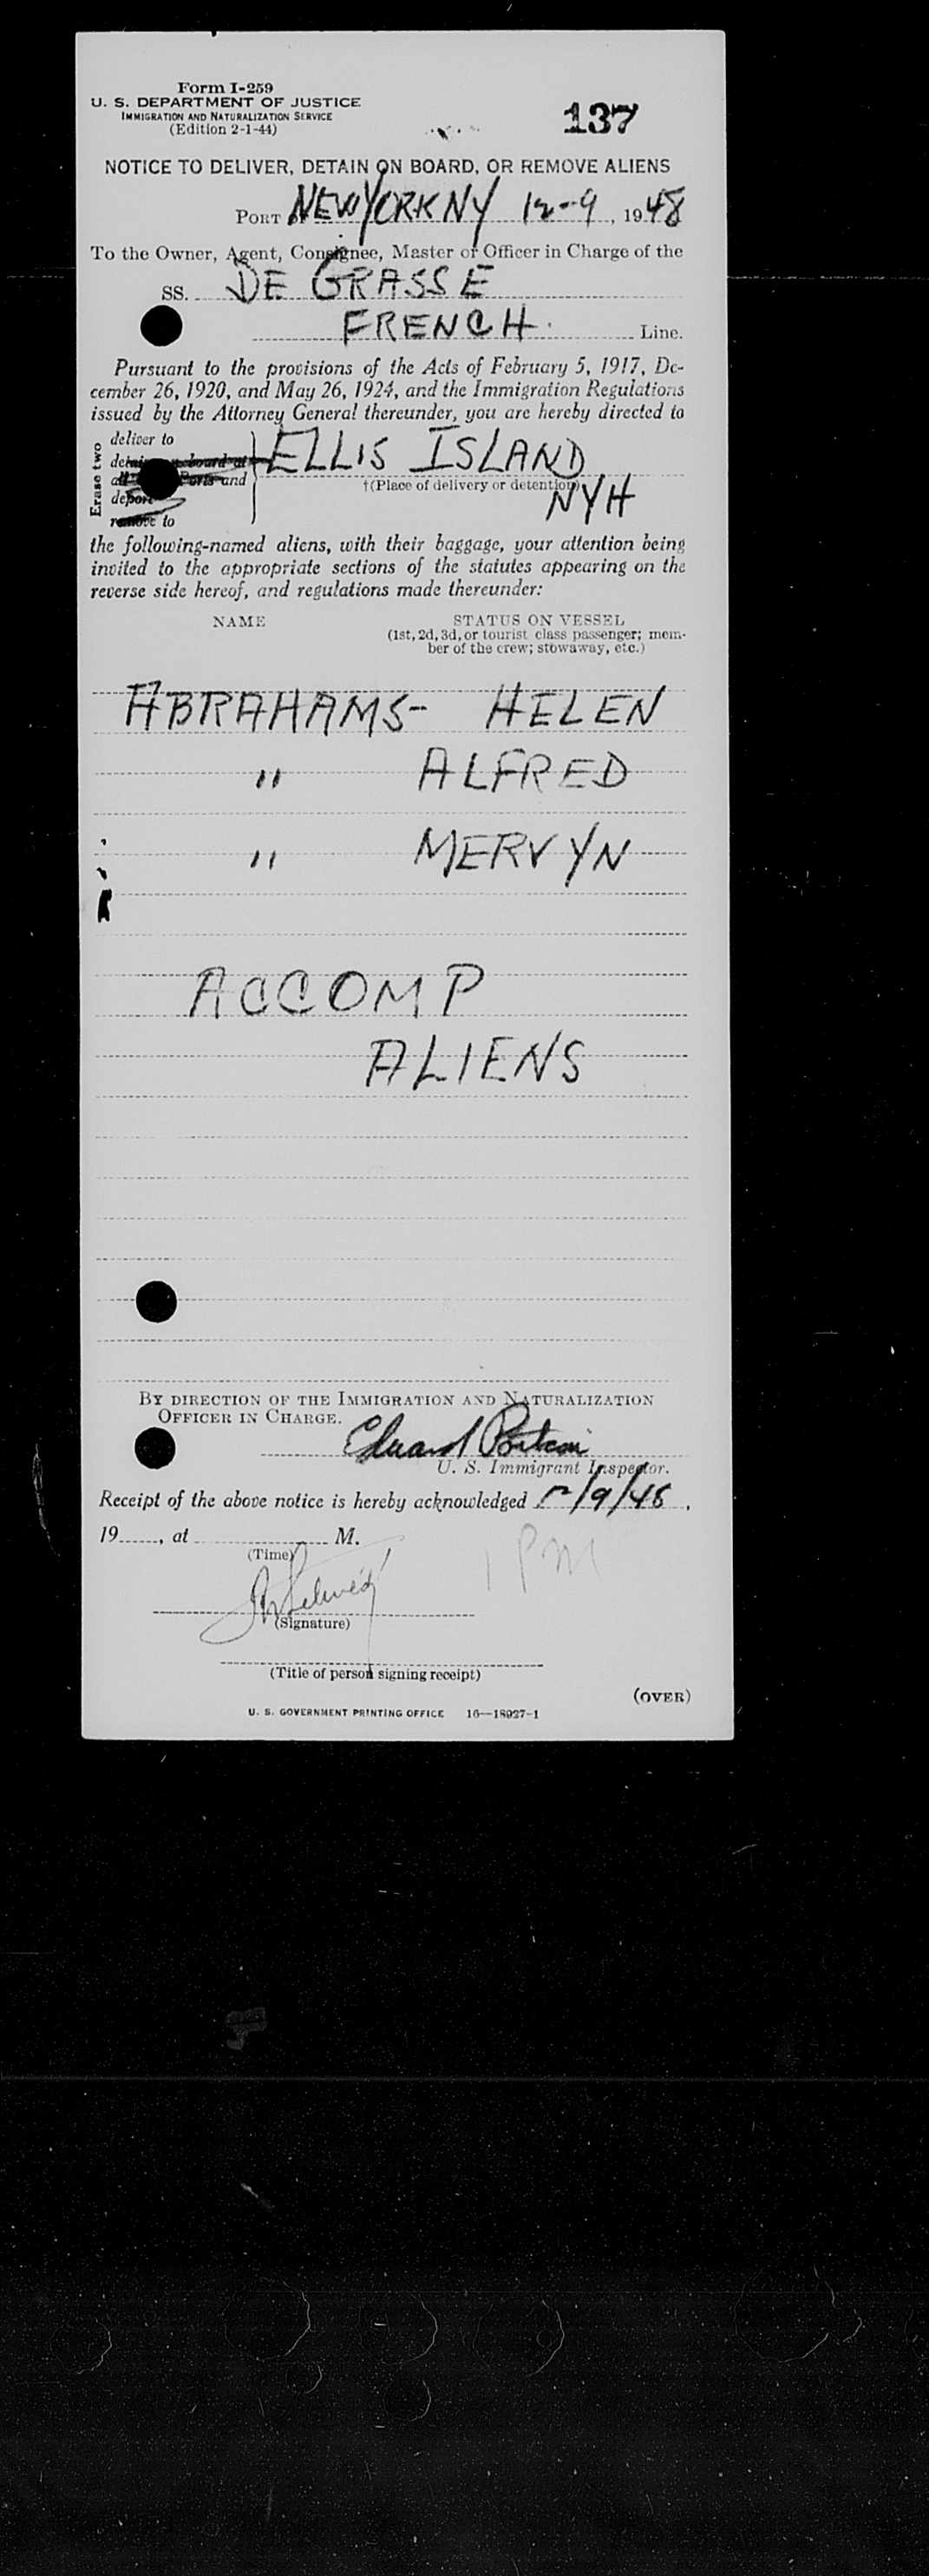 Form I-259
U. S. DEPARTMENT OF JUSTICE
IMMIGRATION AND NATURALIZATION SERVICE
(Edition 2-1-44)
137
NOTICE TO DELIVER, DETAIN ON BOARD, OR REMOVE ALIENS
PORT of NEW YORK NY 12-9, 1948
To the Owner, Agent, Consignee, Master or Officer in Charge of the
SS. DE GRASSE
FRENCH Line.
Pursuant to the provisions of the Acts of February 5, 1917, De-
cember 26, 1920, and May 26, 1924, and the Immigration Regulations
issued by the Attorney General thereunder, you are hereby directed to
Erase two
deliver to
board at
Ports and
deport
remove to
ELLIS ISLAND
†(Place of delivery or detention)
NYH
the following-named aliens, with their baggage, your attention being
invited to the appropriate sections of the statutes appearing on the
reverse side hereof, and regulations made thereunder:
NAME STATUS ON VESSEL
(1st, 2d, 3d, or tourist class passenger; mem-
ber of the crew; stowaway, etc.)
ABRAHAMS- HELEN
" ALFRED
" MERVYN
ACCOMP
ALIENS
BY DIRECTION OF THE IMMIGRATION AND NATURALIZATION
OFFICER IN CHARGE.
U. S. Immigrant Inspector.
Receipt of the above notice is hereby acknowledged 12/9/48,
19____, at ____ M.
(Time)
1 PM
(Signature)
(Title of person signing receipt)
(OVER)
U. S. GOVERNMENT PRINTING OFFICE 16—18927-1